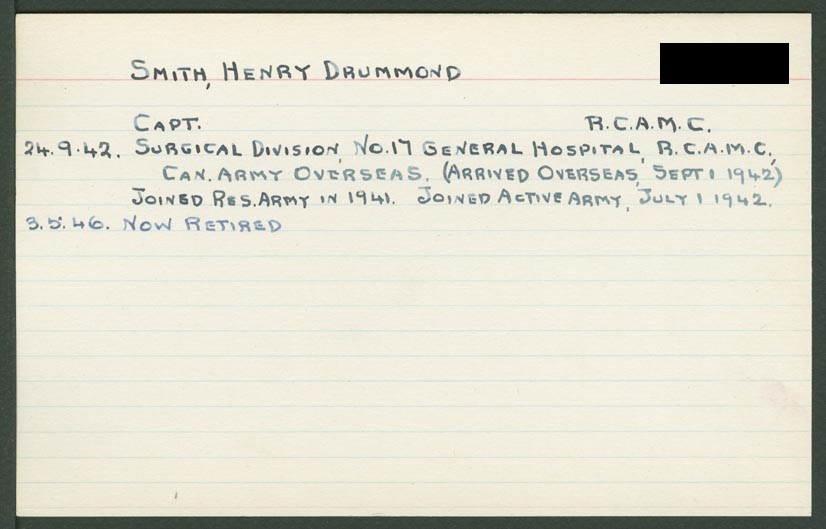 SMITH, HENRY DRUMMOND
CAPT. R.C.A.M.C.
24.9.42. SURGICAL DIVISION, NO.17 GENERAL HOSPITAL, R.C.A.M.C.,
CAN. ARMY OVERSEAS. (ARRIVED OVERSEAS, SEPT 1 1942)
JOINED RES. ARMY IN 1941. JOINED ACTIVE ARMY, JULY 1 1942.
3.5.46. NOW RETIRED